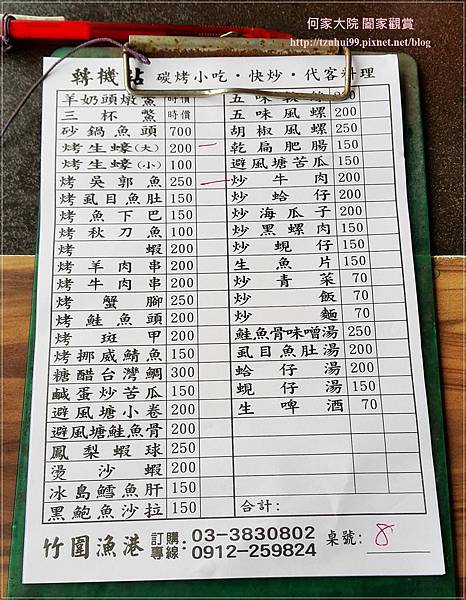 何家大院 闔家觀賞
http://tzuhui99.pixnet.net/blog
轉機站 碳烤小吃・快炒・代客料理
羊奶頭燉鱉 時價
三杯鱉 時價
砂鍋魚頭 700
烤生蠔(大) 200
烤生蠔(小) 100
烤吳郭魚 250
烤虱目魚肚 150
烤魚下巴 150
烤秋刀魚 100
烤蝦 200
烤羊肉串 200
烤牛肉串 200
烤蟹腳 250
烤鮭魚頭 200
烤斑甲 200
烤挪威鯖魚 150
糖醋台灣鯛 300
鹹蛋炒苦瓜 150
避風塘小卷 200
避風塘鮭魚骨 200
鳳梨蝦球 250
燙沙蝦 200
冰島鱈魚肝 150
黑鮑魚沙拉 150
五味
五味風螺 200
胡椒風螺 250
乾扁肥腸 150
避風塘苦瓜 150
炒牛肉 200
炒蛤仔 200
炒海瓜子 200
炒黑螺肉 150
炒蜆仔 150
生魚片 150
炒青菜 70
炒飯 70
炒麵 70
鮭魚骨味噌湯 250
虱目魚肚湯 200
蛤仔湯 200
蜆仔湯 150
生啤酒 70
合計:
竹圍漁港 訂購專線: 03-3830802
0912-259824
桌號: 8